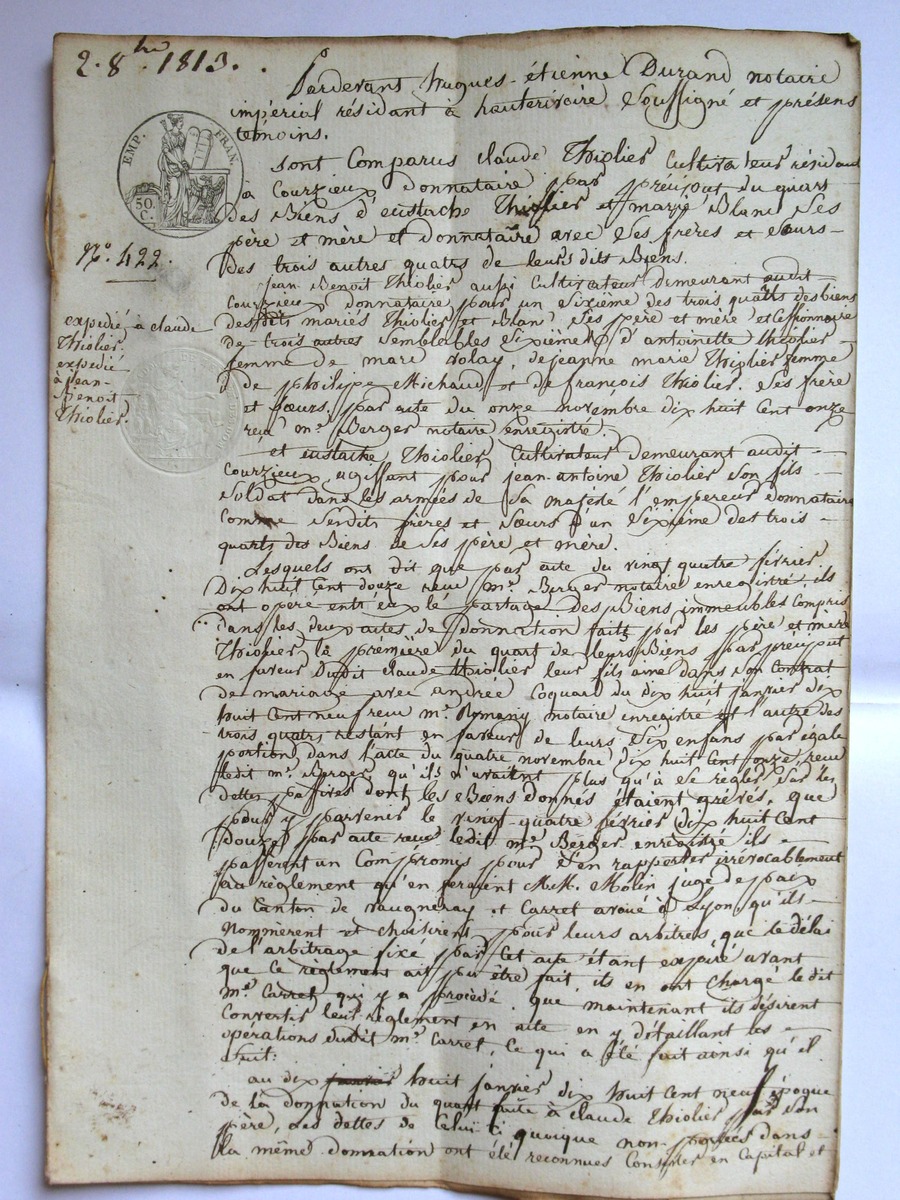 2. 8bre 1813.
Pardevant hugues-étienne Durand notaire
impérial résidant à hauterivoire soussigné et présens
temoins.
EMP. FRAN.
50. C.
Sont Comparus Claude Thiolier Cultivateur résidant
à Courzieux donnataire par préciput du quart
des Biens d'eustache Thiolier et marie Blanc ses
père et mère et donnataire avec ses frères et sœurs
des trois autres quatrs de leurs dits Biens.
N.o 422.
Jean Benoit Thiolier aussi Cultivateur demeurant audit
Courzieux donnataire pour un sixième des trois quatrs des biens
desdits mariés Thiolier et Blanc ses père et mère et Cessionnaire
de trois autres semblables sixièmes d'antoinette Thiolier
femme de marc volay, de jeanne marie Thiolier femme
de philipe Michaud et de françois Thiolier ses frère
et sœurs, par acte du onze novembre dix huit Cent onze
reçu me. Berger notaire enregistré.
expedié à claude
Thiolier.
expedié
à Jean-
Benoit
Thiolier.
et eustache Thiolier Cultivateur demeurant audit
Courzieux agissant pour jean-antoine Thiolier son fils
soldat dans les armées de sa majesté l'empereur donnataire
Comme sesdits frères et sœurs d'un sixième des trois
quarts des Biens de ses père et mère.
Lesquels ont dit que par acte du vingt quatre février
Dix huit Cent douze reçu me. Berger notaire enregistré, ils
ont opéré entr'eux le partage des Biens immeubles Compris
dans les deux actes de donnation faits par les père et mère
Thiolier la première du quart de leurs Biens par préciput
en faveur dudit claude Thiolier leur fils ainé dans son Contrat
de mariage avec andrée Coquard du dix huit janvier dix
huit Cent neuf reçu me. Romany notaire enregistré et l'autre des
trois quatrs restant en faveur de leurs six enfans par égale
portion dans l'acte du quatre novembre dix huit Cent onze, reçu
ledit me. Berger qu'ils n'avaient plus qu'à se règler sur les
dettes passives dont les Biens donnés étaient grévés, que
pour y parvenir le vingt-quatre février dix huit Cent
Douze par acte reçu ledit me. Berger enregistré ils
passèrent un Compromis pour s'en rapporter irrévocablement
au règlement qu'en feraient M.M. Molin juge de paix
du Canton de vaugneray et Carret avoué à Lyon qu'ils
nommèrent et choisirent pour leurs arbitres, que le délai
de l'arbitrage fixé par Cet acte étant expiré avant
que Ce règlement ait pu être fait, ils en ont Chargé ledit
me. Carret qui y a procédé que maintenant ils désirent
Convertir leur règlement en acte en y détaillant les
opérations dudit me. Carret, Ce qui a été fait ainsi qu'il
suit:
au dix huit janvier dix huit Cent neuf époque
de la donnation du quart faite à claude Thiolier par son
père, Les dettes de Celui-ci quoique non portées dans
la même donnation ont été reconnues Consister en Capital et